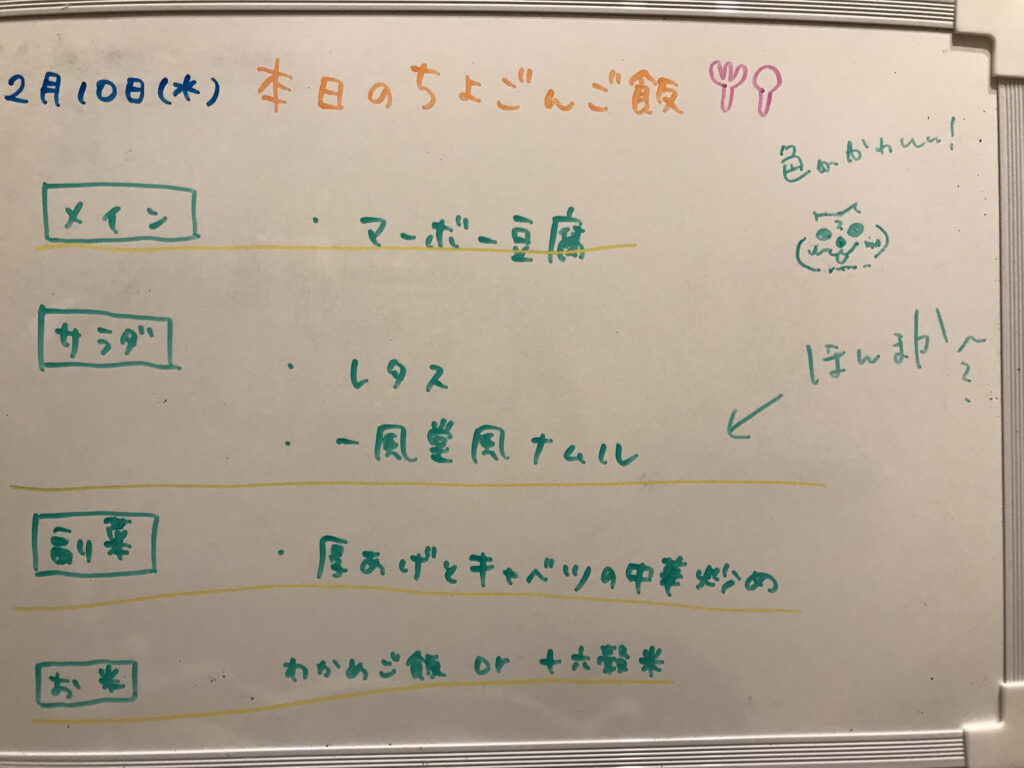 2月10日(水) 本日のちよごんご飯
色がかわいい!
メイン ・マーボー豆腐
サラダ ・レタス
ほんまか〜?
・一風堂風ナムル
副菜 ・厚あげとキャベツの中華炒め
お米 わかめご飯 or 十六穀米